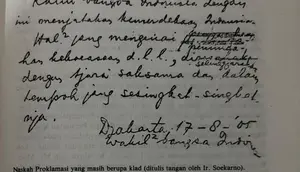 Kami bangsa Indonesia dengan
ini menjatakan kemerdekaan Indonesia.
Hal2 jang mengenai
kan kekoeasaan d.l.l., diselenggarakan
dengan tjara saksama dan dalam
tempoh jang sesingkat-singkat
nja.
Djakarta, 17-8-'05
Wakil2 bangsa Indon
Naskah Proklamasi yang masih berupa klad (ditulis tangan oleh Ir. Soekarno).